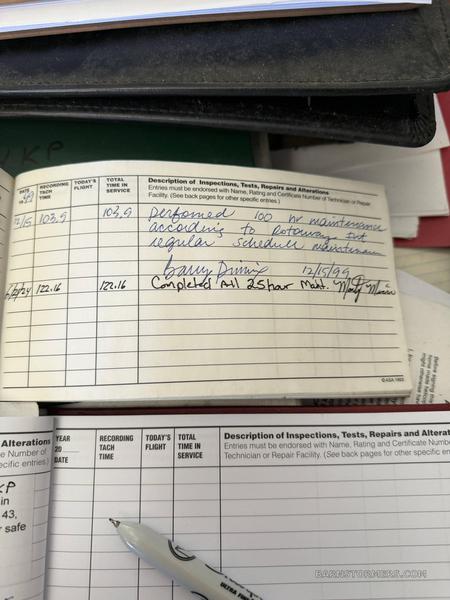 KP
DATE
RECORDING
TACH
TIME
TODAY'S
FLIGHT
TOTAL
TIME IN
SERVICE
Description of Inspections, Tests, Repairs and Alterations
Entries must be endorsed with Name, Rating and Certificate Number of Technician or Repair
Facility. (See back pages for other specific entries.)
12/15 103.9 103.9 perfomed 100 hr maintenance
according to Rotoway Int
regular schedule maintenance
Barry 12/15/99
122.16 122.16 Completed All 25 hour Maint.
©ASA 1993
Before signing
Alterations
e Number of
ecific entries.)
KP
in
43,
r safe
YEAR
20
DATE
RECORDING
TACH
TIME
TODAY'S
FLIGHT
TOTAL
TIME IN
SERVICE
Description of Inspections, Tests, Repairs and Alterat
Entries must be endorsed with Name, Rating and Certificate Number
Technician or Repair Facility. (See back pages for other specific en
ULTRA FINE
BARNSTORMERS.COM